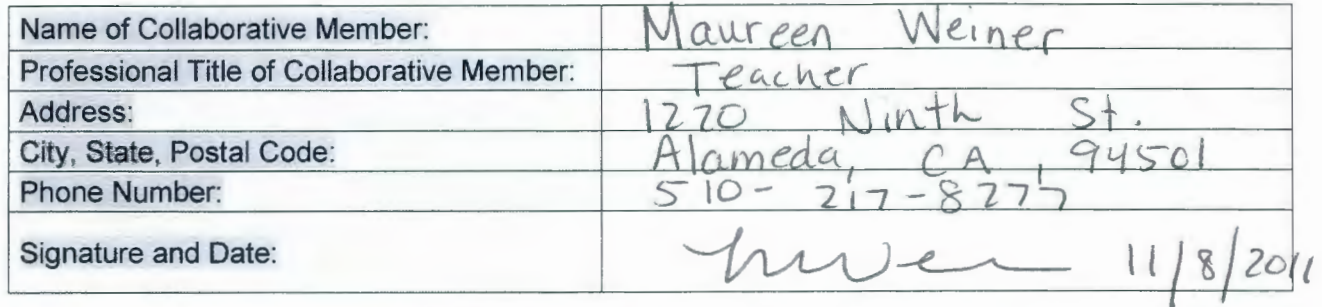 Name of Collaborative Member: Maureen Weiner
Professional Title of Collaborative Member: Teacher
Address: 1220 Ninth St.
City, State, Postal Code: Alameda, CA, 94501
Phone Number:
Signature and Date: 11/8/2011